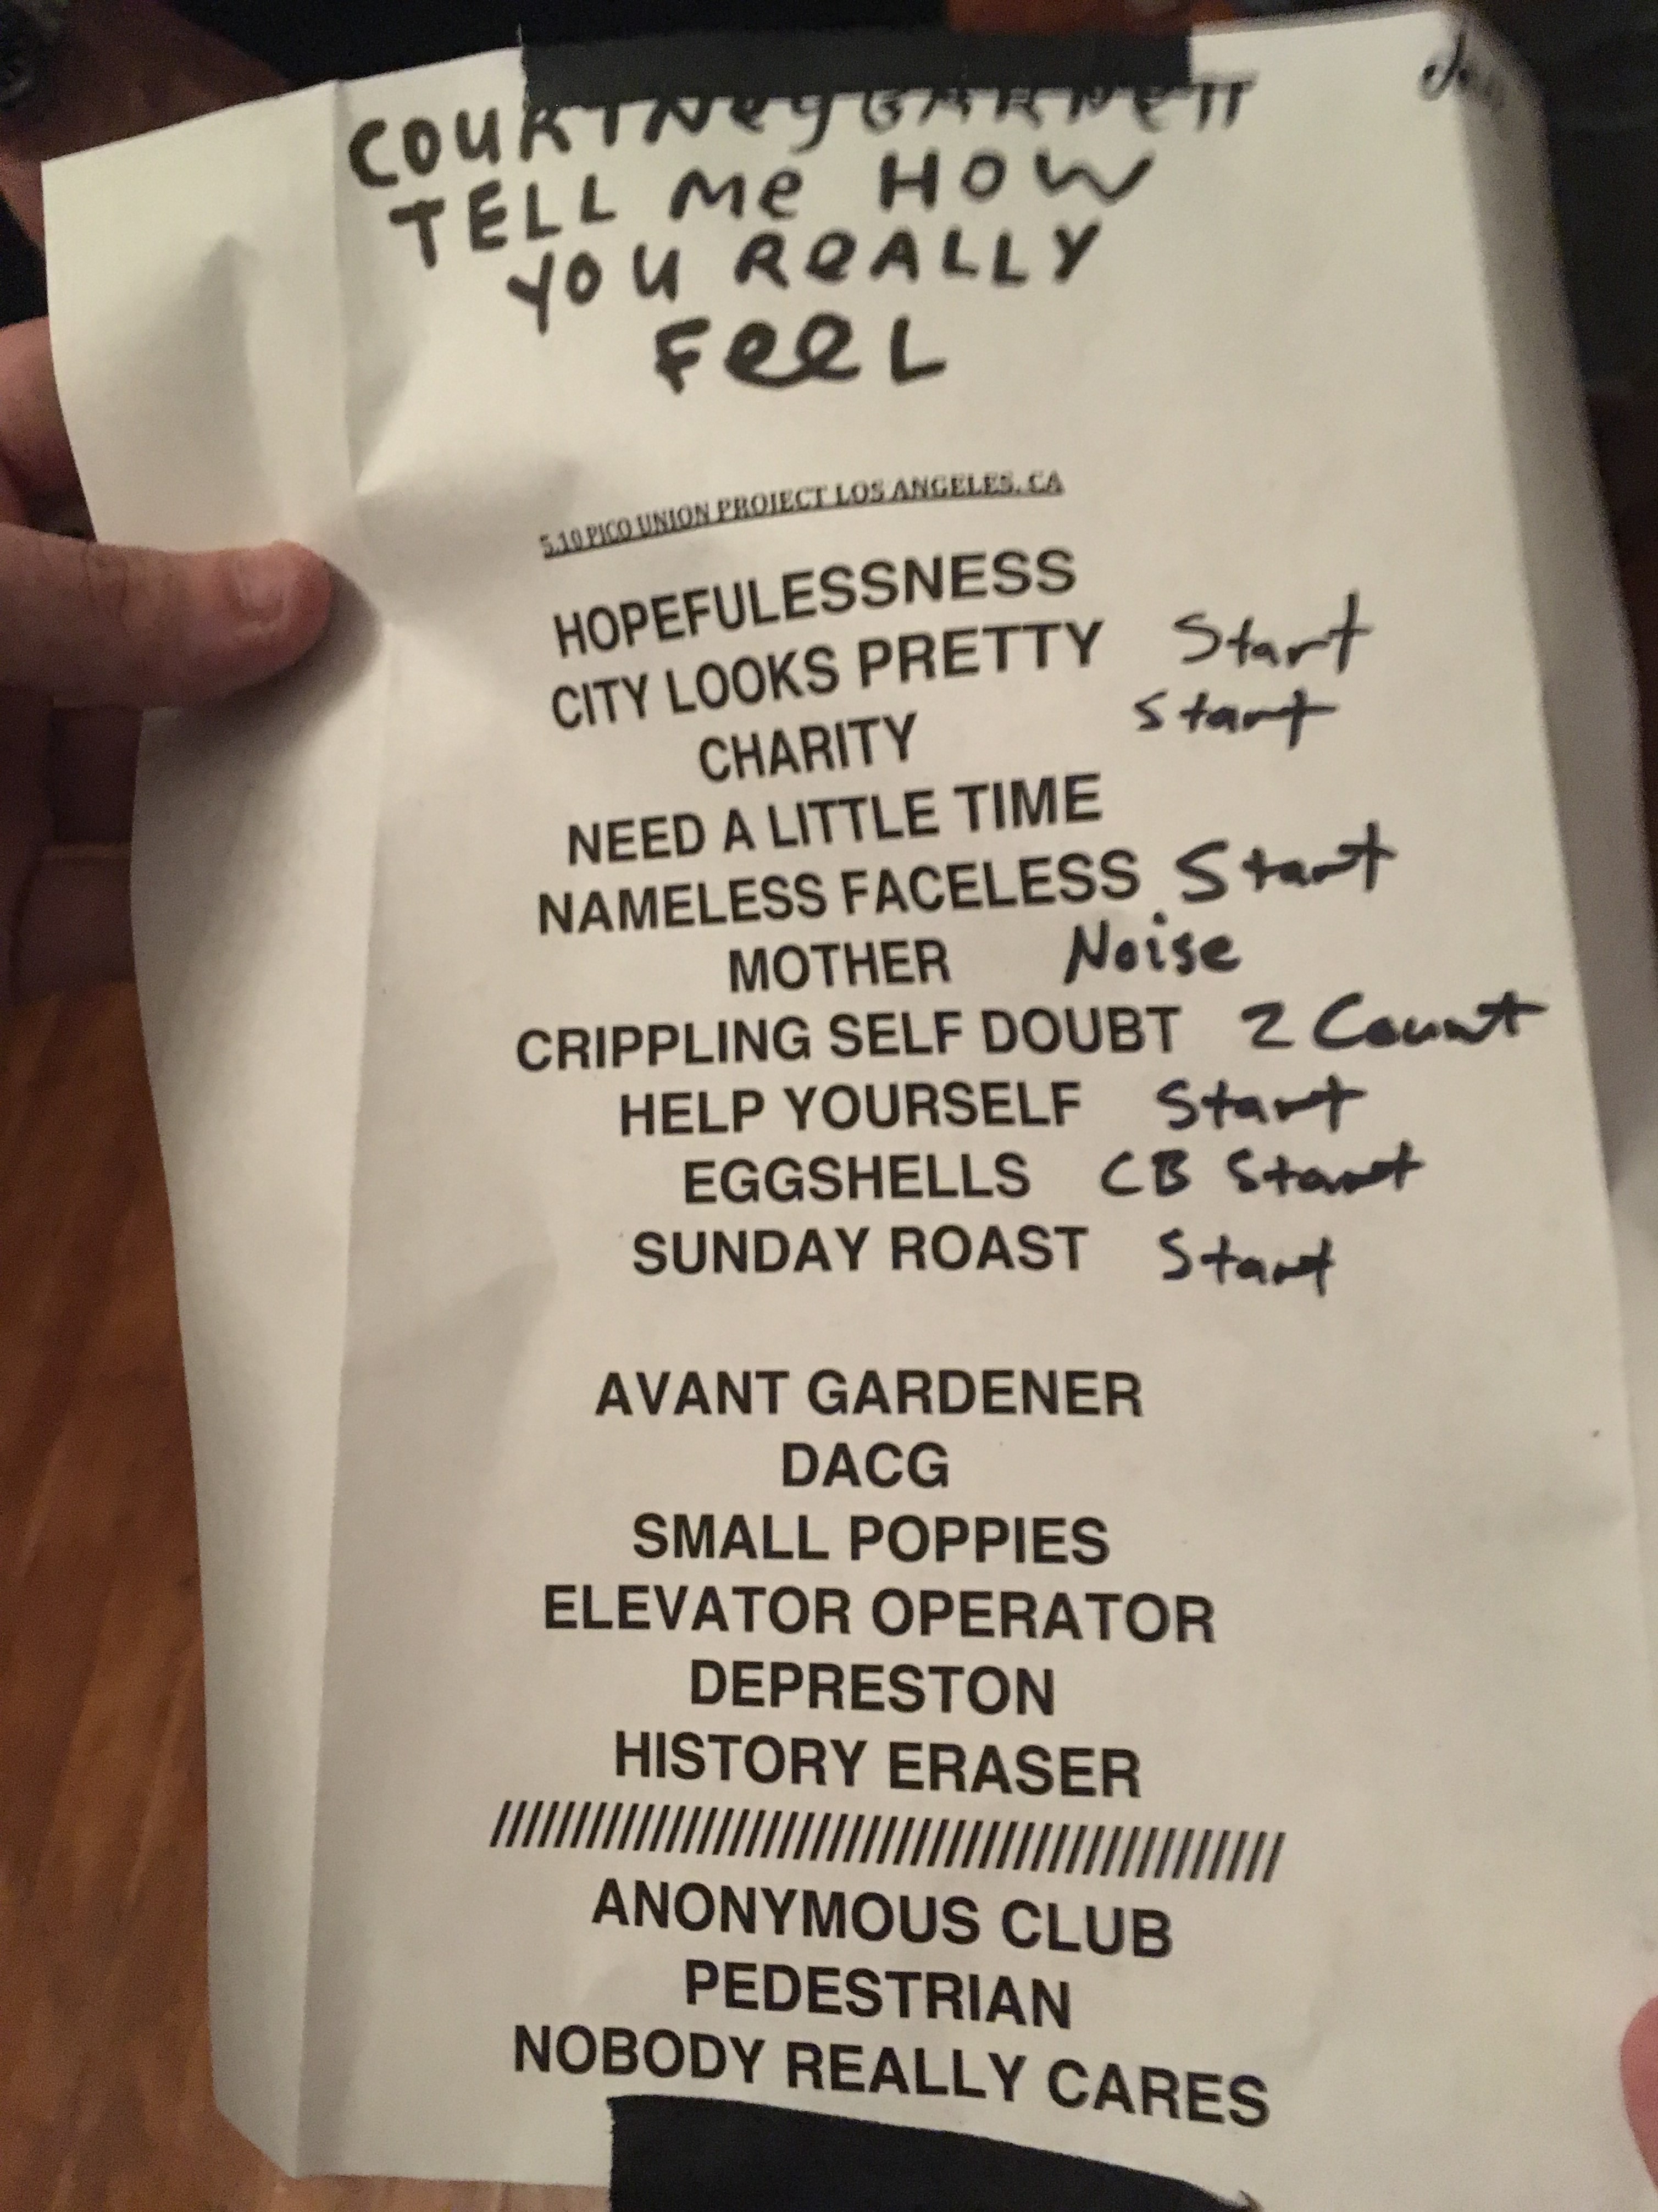 COURTNeY BARNeTT
TELL Me HOW
YOU ReALLY
FeeL
5.10 PICO UNION PROJECT LOS ANGELES, CA
HOPEFULESSNESS
CITY LOOKS PRETTY Start
CHARITY Start
NEED A LITTLE TIME
NAMELESS FACELESS Start
MOTHER Noise
CRIPPLING SELF DOUBT 2 Count
HELP YOURSELF Start
EGGSHELLS CB Start
SUNDAY ROAST Start
AVANT GARDENER
DACG
SMALL POPPIES
ELEVATOR OPERATOR
DEPRESTON
HISTORY ERASER
//////////////////////////////////////////
ANONYMOUS CLUB
PEDESTRIAN
NOBODY REALLY CARES